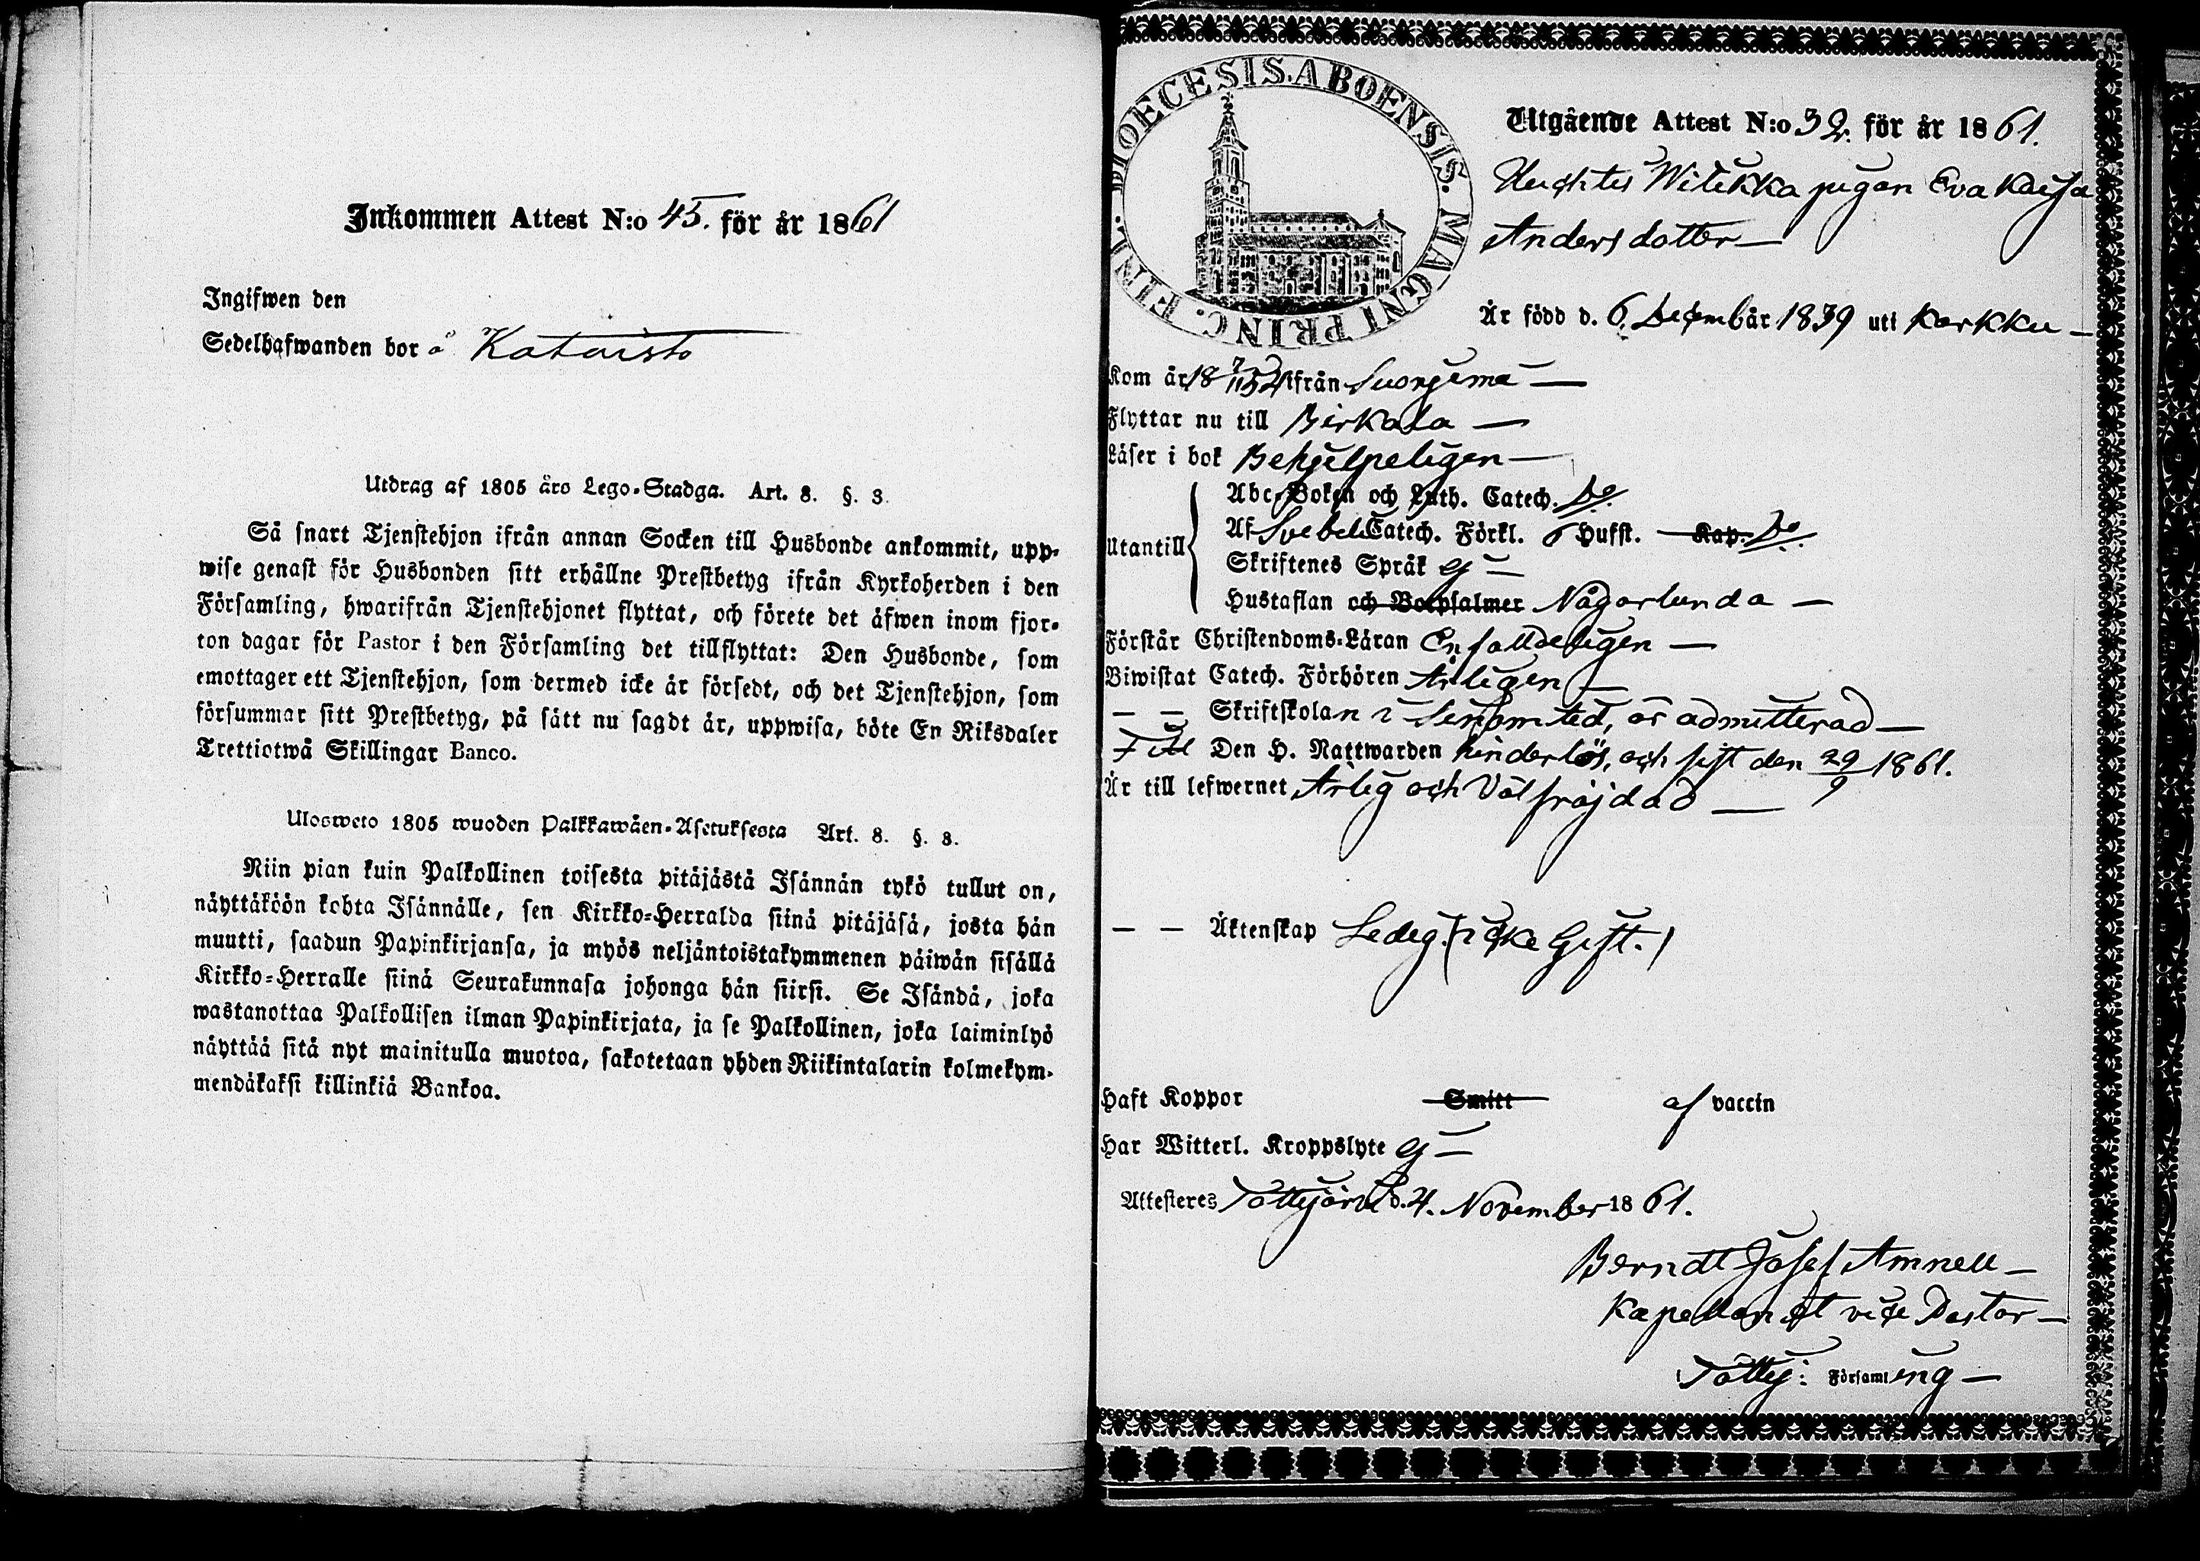 Inkommen Attest N:o 45. för år 1861
Ingifwen den
Sedelhafwanden bor å Kataisto
Utdrag af 1805 års Lego-Stadga. Art. 8. §. 3.
Så snart Tjenstehjon ifrån annan Socken till Husbonde ankommit, upp-
wise genast för Husbonden sitt erhållne Prestbetyg ifrån Kyrkoherden i den
Församling, hwarifrån Tjenstehjonet flyttat, och förete det äfwen inom fjor-
ton dagar för Pastor i den Församling det tillflyttat: Den Husbonde, som
emottager ett Tjenstehjon, som dermed icke är försedt, och det Tjenstehjon, som
försummar sitt Prestbetyg, på sätt nu sagdt är, uppwisa, böte En Riksdaler
Trettiotwå Skillingar Banco.
Ulosweto 1805 wuoden Palkkawäen-Asetuksesta Art. 8. §. 3.
Niin pian kuin Palkollinen toisesta pitäjästä Isännän tykö tullut on,
näyttäköön kohta Isännälle, sen Kirkko-Herralda siinä pitäjäsä, josta hän
muutti, saadun Papinkirjansa, ja myös neljäntoistakymmenen päiwän sisällä
Kirkko-Herralle siinä Seurakunnasa johonga hän siirsi. Se Isändä, joka
wastanottaa Palkollisen ilman Papinkirjata, ja se Palkollinen, joka laiminlyö
näyttää sitä nyt mainitulla muotoa, sakotetaan yhden Riikintalarin kolmekym-
mendäkaksi killinkiä Bankoa.
DIOECESIS. ABOENSIS. MAGNI PRINC. FINL.
Utgående Attest N:o 32. för år 1861.
Witikka pigan Eva Kaisa
Andersdotter
Är född d. 6. Decembär 1839 uti Karkku
Kom år 18 ifrån Suonjemä
Flyttar nu till Birkala
Läser i bok Behjelpeligen
Utantill
Abc-Boken och Luth. Catech. Do
Af Svebeli Catech. Förkl. 6 Hufst. Kap. Do
Skriftenes Språk ej
Hustaflan och Botpsalmer Någorlunda
Förstår Christendoms-Läran Enfalldeligen
Biwistat Catech. Förhören Årligen
— — Skriftskolan i sinom tid, är admitterad
Den H. Nattwarden hinderlös, och sist den 29/9 1861.
Är till lefwernet Ärlig och Välfräjdad
— — Äktenskap Ledig. (icke Gift.)
Haft Koppor Smitt af vaccin
Har Witterl. Kroppslyte ej
Attesteres Tottijärvi d. 4. November 1861.
Berndt Josef Amnell
Kapellan et vice Pastor
Totty: Församling